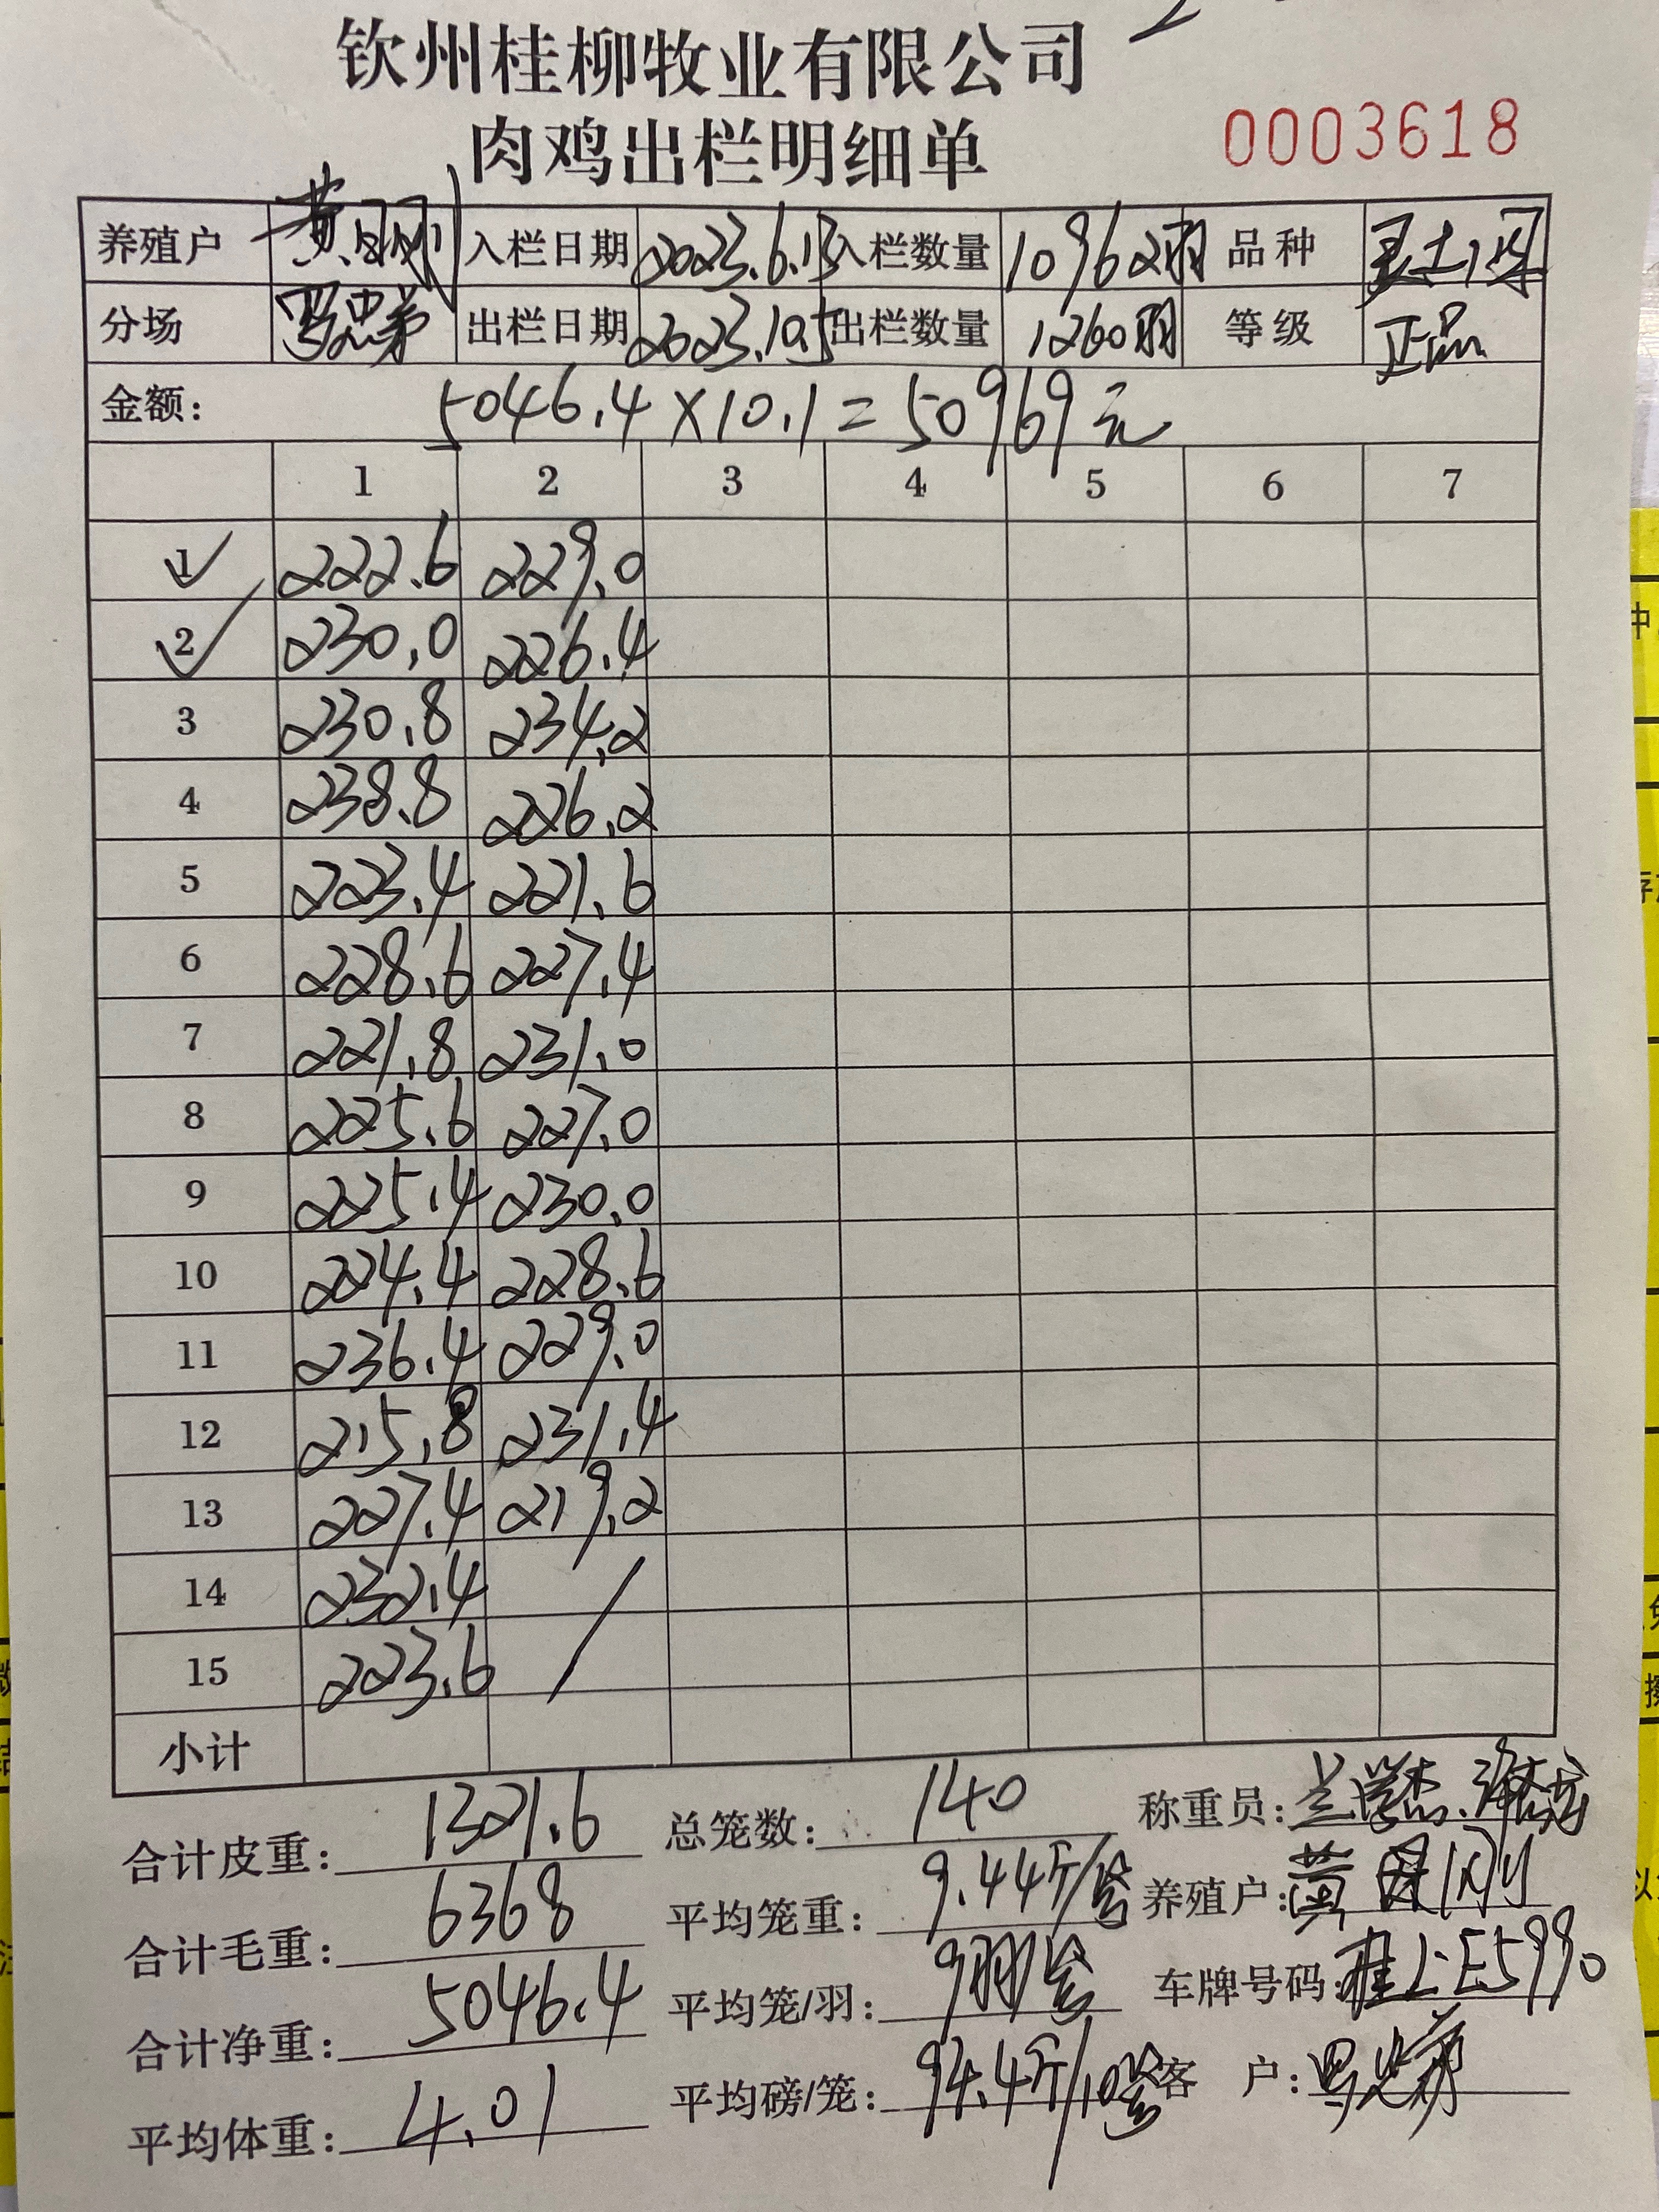 钦州桂柳牧业有限公司
肉鸡出栏明细单
0003618
养殖户 黄 刚 入栏日期 2023.6.13 入栏数量 10962羽 品种
分场 出栏日期 2023.10.5 出栏数量 1260羽 等级 正品
金额: 5046.4×10.1=50969元
1 2 3 4 5 6 7
1 222.6 229.0
2 230.0 226.4
3 230.8 234.2
4 238.8 226.2
5 223.4 221.6
6 228.6 227.4
7 221.8 231.0
8 225.6 227.0
9 225.4 230.0
10 224.4 228.6
11 236.4 229.0
12 215.8 231.4
13 227.4 219.2
14 232.4
15 223.6
小计
合计皮重: 1321.6 总笼数: 140 称重员:
合计毛重: 6368 平均笼重: 9.44斤/笼 养殖户: 黄 刚
合计净重: 5046.4 平均笼/羽: 9羽/笼 车牌号码: 桂 E5990
平均体重: 4.01 平均磅/笼: 94.4斤/10笼 客 户: